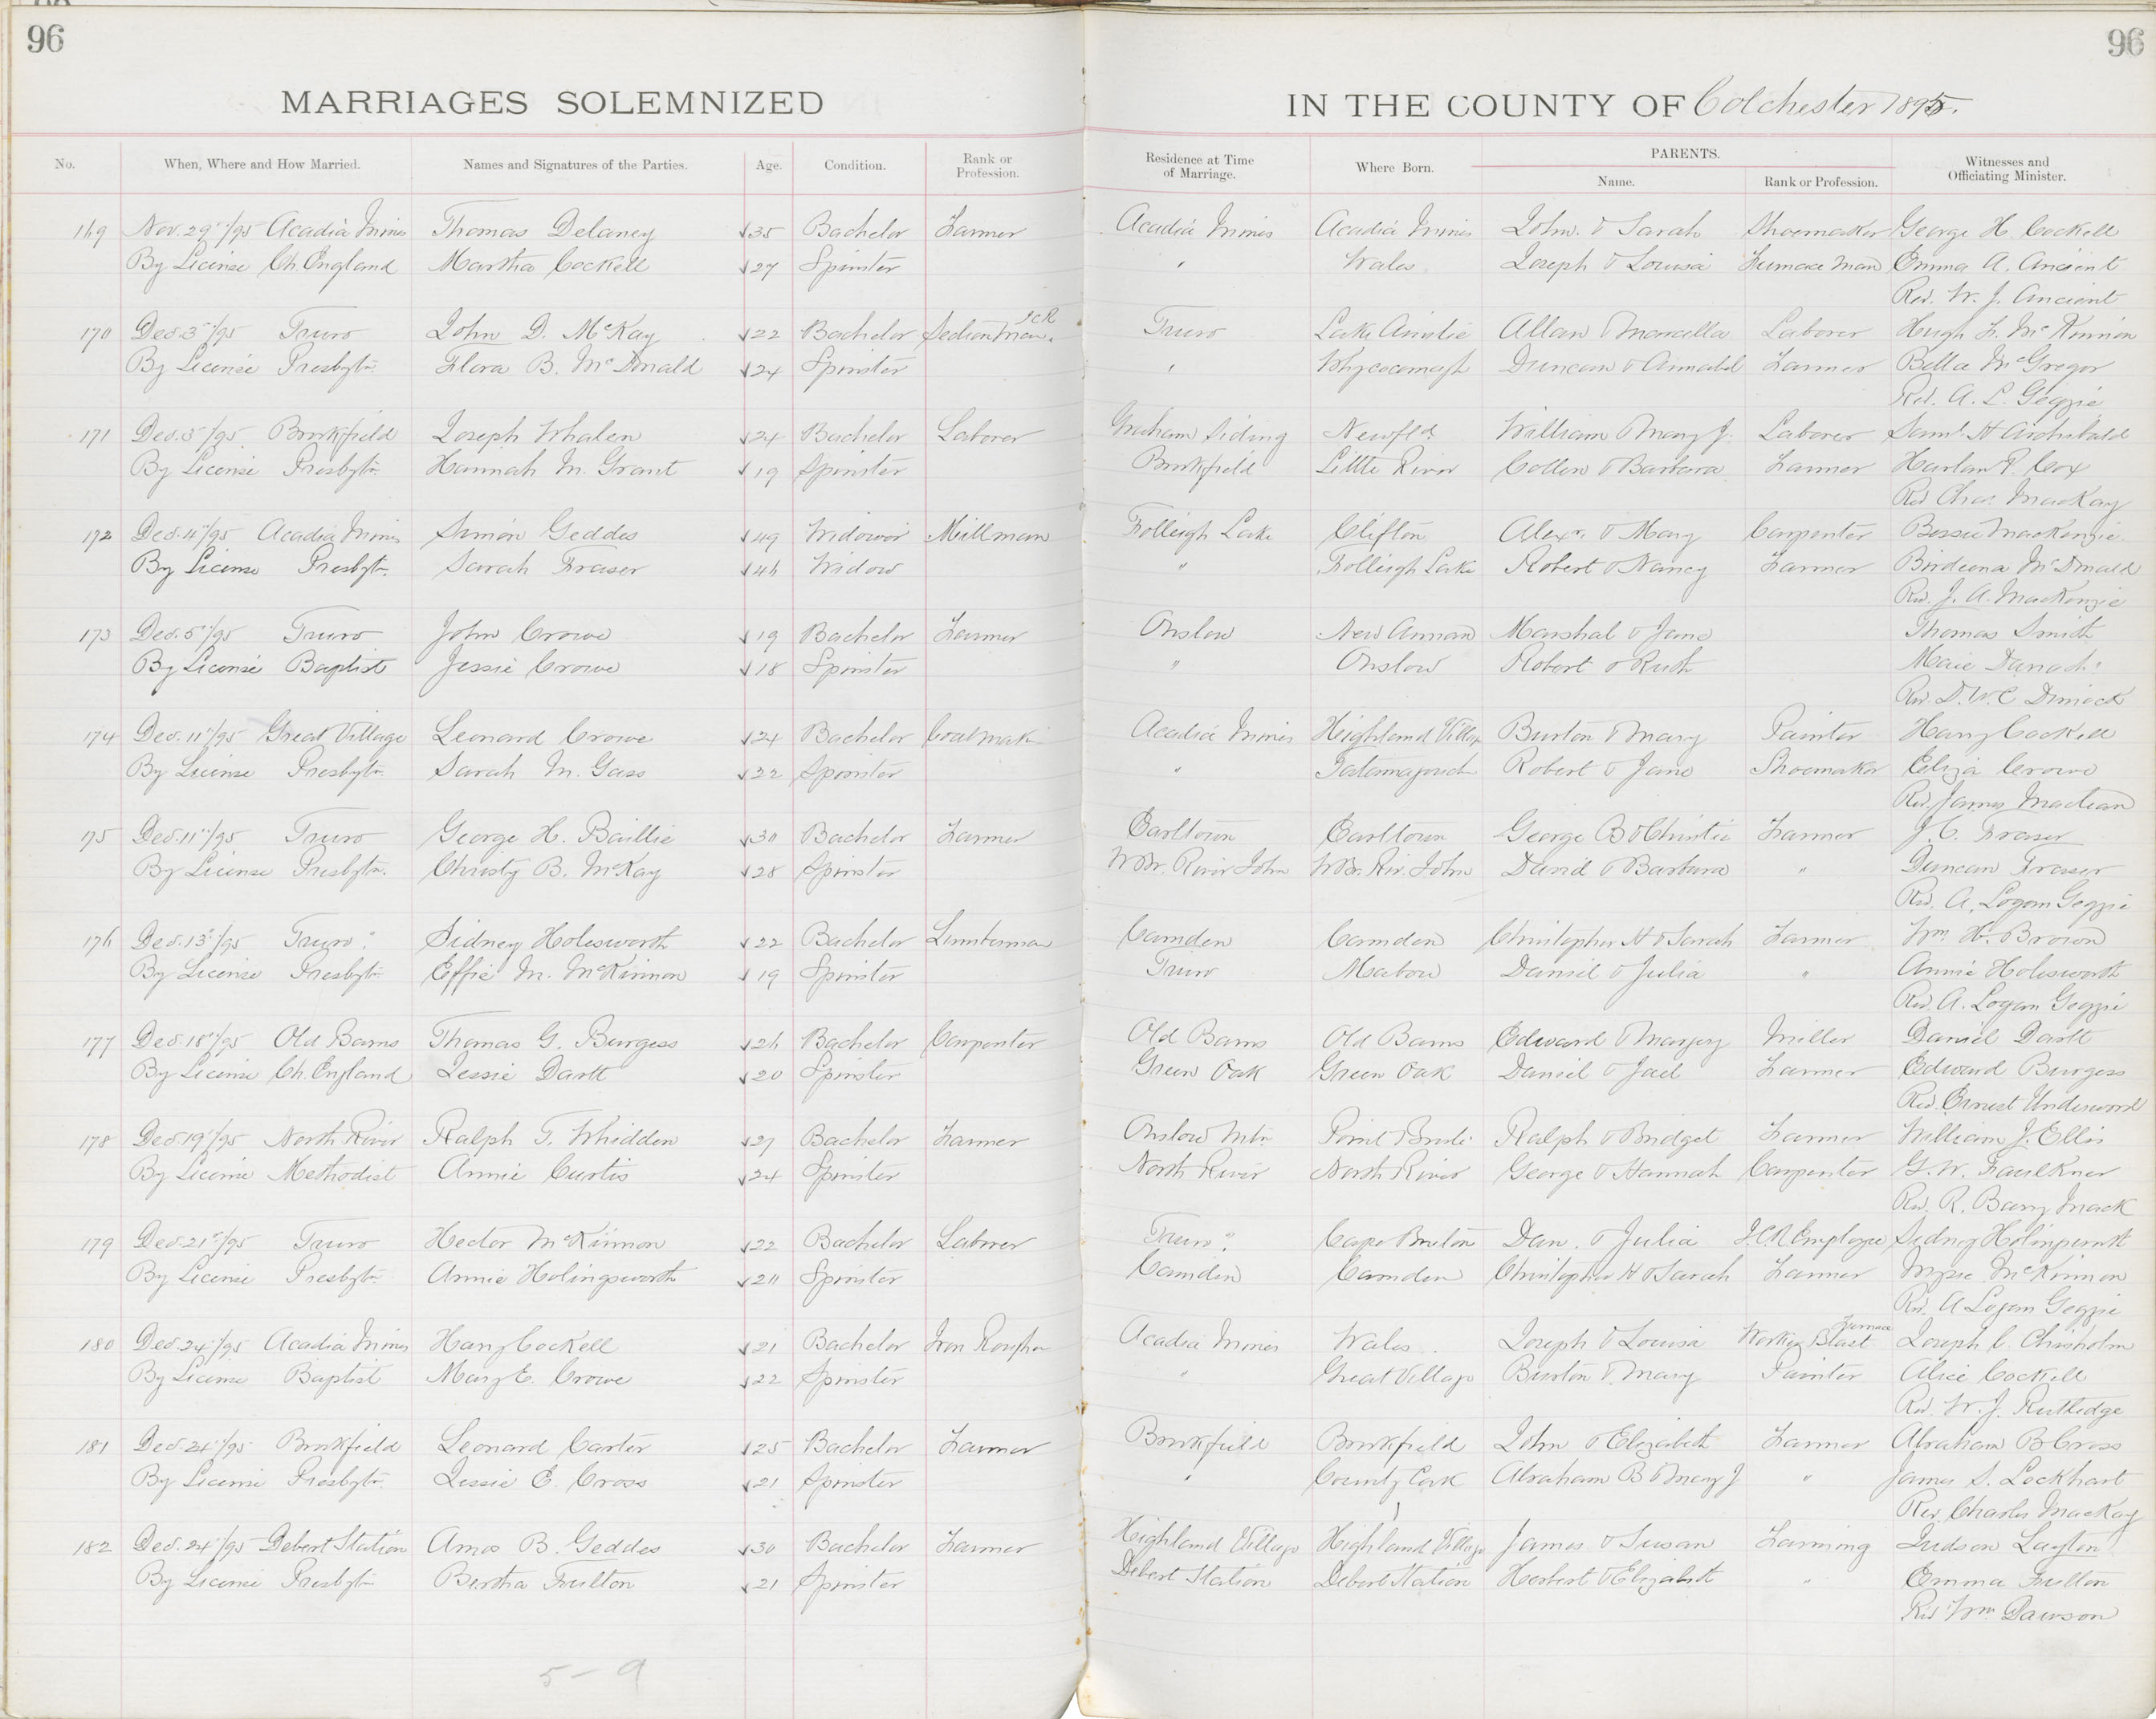 96
96
MARRIAGES SOLEMNIZED
IN THE COUNTY OF Colchester 1895.
No. When, Where and How Married. Names and Signatures of the Parties. Age. Condition. Rank or Profession. Residence at Time of Marriage. Where Born. PARENTS. Name. Rank or Profession. Witnesses and Officiating Minister.
169 Nov. 29th/95 Acadia Mines Thomas Delaney 35 Bachelor Farmer Acadia Mines Acadia Mines John & Sarah Shoemaker George H. Cockell
By License Ch. England Martha Cockell 27 Spinster " Wales Joseph & Louisa Furnace Man Emma A. Ancient
Rev. W. J. Ancient
170 Dec. 3rd/95 Truro John D. McKay 22 Bachelor Section Man. I C R Truro Lake Ainslie Allan & Marcella Laborer Hugh F. McKinnon
By License Presbytn. Flora B. McDonald 24 Spinster " Whycocomagh Duncan & Annabel Farmer Bella McGregor
Rev. A. L. Geggie
171 Dec. 3rd/95 Brookfield Joseph Whalen 24 Bachelor Laborer Graham Siding Newfld. William & Mary J. Laborer Saml. H Archibald
By License Presbytn. Hannah M. Grant 19 Spinster Brookfield Little River Collen & Barbara Farmer Harlan P. Cox
Rev Chas. MacKay
172 Dec. 4th/95 Acadia Mines Simon Geddes 49 Widower Millman Folleigh Lake Clifton Alexr. & Mary Carpenter Bessie MacKenzie
By License Presbytn. Sarah Fraser 46 Widow " Folleigh Lake Robert & Nancy Farmer Birdiena McDonald
Rev. J. A. MacKenzie
173 Dec. 5th/95 Truro John Crowe 19 Bachelor Farmer Onslow New Annan Marshal & Jane Thomas Smith
By License Baptist Jessie Crowe 18 Spinster " Onslow Robert & Ruth Maie
Rev. D. W. C Dimock
174 Dec. 11th/95 Great Village Leonard Crowe 24 Bachelor Acadia Mines Highland Village Burton & Mary Painter Harry Cockell
By License Presbytn. Sarah M. Gass 22 Spinster " Tatamagouche Robert & Jane Shoemaker Eliza Crowe
Rev. James Maclean
175 Dec. 11th/95 Truro George H. Baillie 30 Bachelor Farmer Earltown Earltown George B & Christie Farmer J. C. Fraser
By License Presbytn. Christy B. McKay 28 Spinster W Br. River John W Br. Riv. John David & Barbara " Duncan Fraser
Rev. A. Logan Geggie
176 Dec. 13th/95 Truro Sidney Holesworth 22 Bachelor Lumberman Camden Camden Christopher H & Sarah Farmer Wm. H. Brown
By License Presbytn. Effie M. McKinnon 19 Spinster Truro Mabou Daniel & Julia " Annie Holesworth
Rev. A. Logan Geggie
177 Dec. 18th/95 Old Barns Thomas G. Burgess 26 Bachelor Carpenter Old Barns Old Barns Edward & Margery Miller Daniel Dartt
By License Ch. England Jessie Dartt 20 Spinster Green Oak Green Oak Daniel & Jael Farmer Edward Burgess
Rev. Ernest Underwood
178 Dec. 19th/95 North River Ralph T. Whidden 27 Bachelor Farmer Onslow Mtn Point Brule Ralph & Bridget Farmer William J. Ellis
By License Methodist Annie Curtis 24 Spinster North River North River George & Hannah Carpenter G. W. Faulkner
Rev. R. Barry Mack
179 Dec. 21st/95 Truro Hector McKinnon 22 Bachelor Laborer Truro Cape Breton Dan. & Julia I.C.R Employee Sidney
By License Presbytn Annie Holingsworth 20 Spinster Camden Camden Christopher H & Sarah Farmer McKinnon
Rev. A Logan Geggie
180 Dec. 24th/95 Acadia Mines Harry Cockell 21 Bachelor Iron Acadia Mines Wales Joseph & Louisa Blast Furnace Joseph C. Chisholm
By License Baptist Mary E. Crowe 22 Spinster " Great Village Burton & Mary Painter Alice Cockell
Rev. W. J. Rutledge
181 Dec. 24th/95 Brookfield Leonard Carter 25 Bachelor Farmer Brookfield Brookfield John & Elizabeth Farmer Abraham B Cross
By License Presbytn. Jessie E. Cross 21 Spinster " County Cork Abraham B & Mary J " James S. Lockhart
Rev. Charles MacKay
182 Dec. 24th/95 Debert Station Amos B. Geddes 30 Bachelor Farmer Highland Village Highland Village James & Susan Farming Judson Layton
By License Presbytn Bertha Fulton 21 Spinster Debert Station Debert Station Herbert & Elizabeth " Emma Fulton
Rev Wm. Dawson
5-9